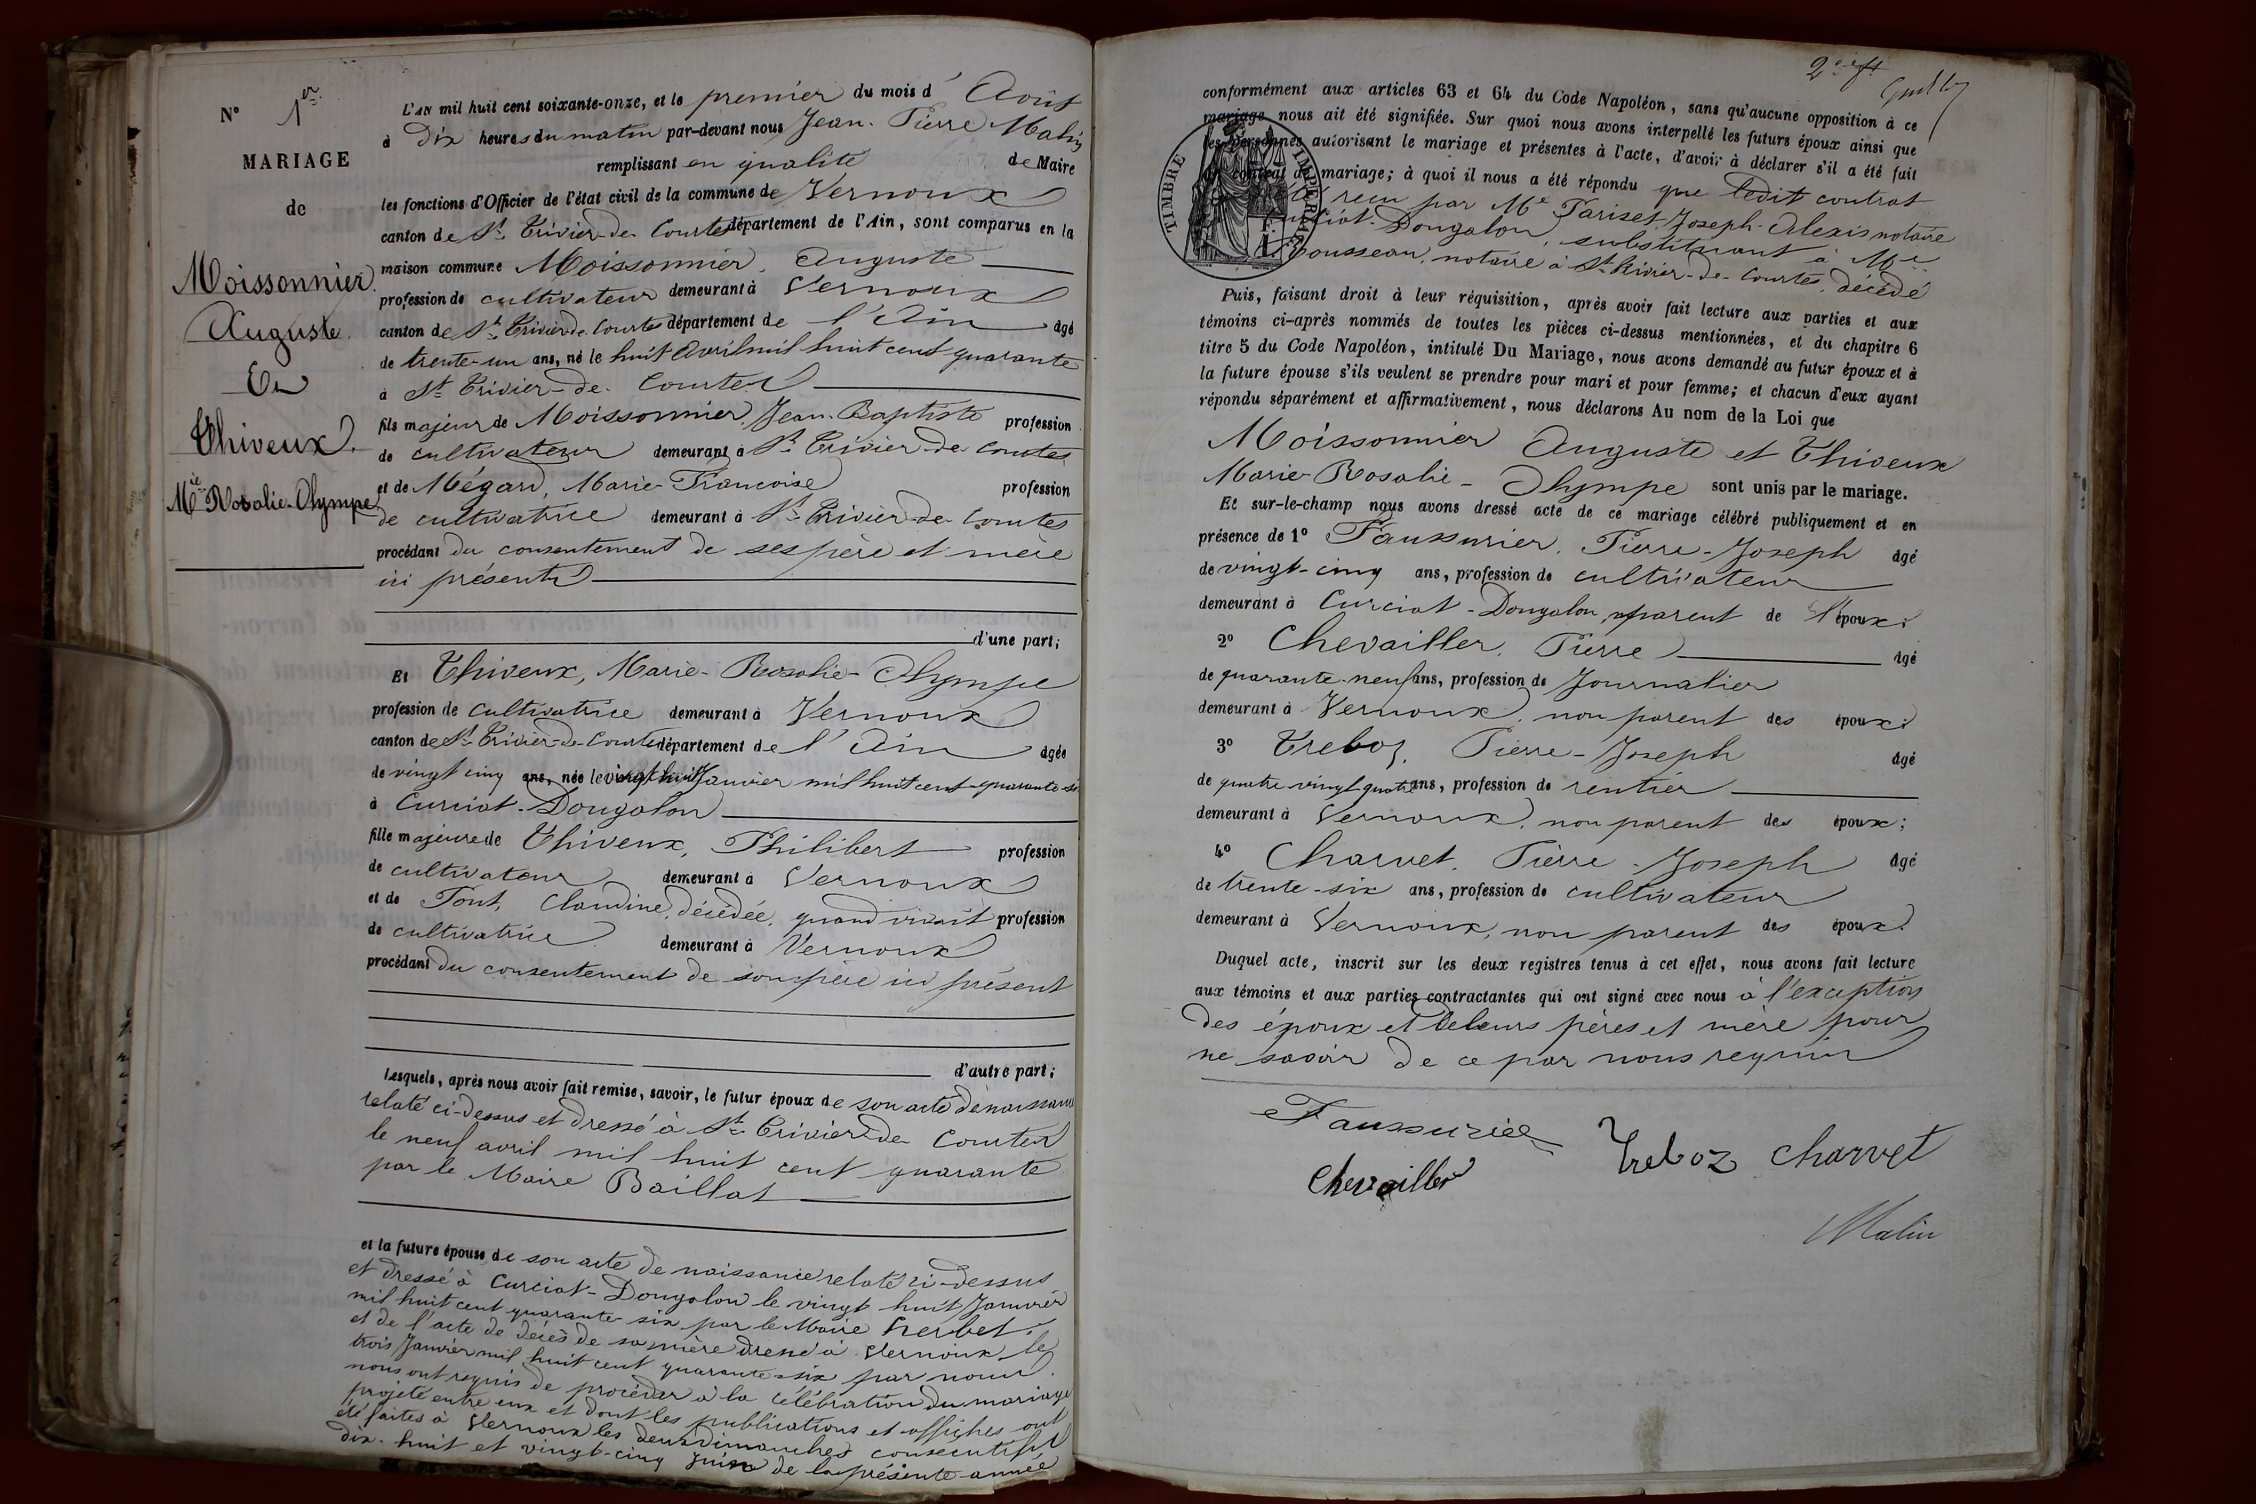 N° 1er
MARIAGE
de
Moissonnier
Auguste
Et
Thiveux
Mie Rosalie-Olympe
L'AN mil huit cent soixante-onze, et le premier du mois d' Août
à Dix heures du matin par-devant nous Jean-Pierre Malin
remplissant en qualité de Maire
les fonctions d'Officier de l'état civil de la commune de Vernoux
canton de St Trivier-de-Courtes département de l'Ain, sont comparus en la
maison commune Moissonnier, Auguste
profession de cultivateur demeurant à Vernoux
canton de St Trivier-de-Courtes département de l'Ain âgé
de trente-un ans, né le huit Avril mil huit cent quarante
à St Trivier-de-Courtes
fils majeur de Moissonnier, Jean-Baptiste profession
de cultivateur demeurant à St Trivier-de-Courtes
et de Mégard, Marie-Françoise profession
de cultivatrice demeurant à St Trivier-de-Courtes
procédant du consentement de ses père et mère
ici présents
d'une part;
Et Thiveux, Marie-Rosalie-Olympe
profession de cultivatrice demeurant à Vernoux
canton de St Trivier-de-Courtes département de l'Ain âgée
de vingt cinq ans, née le vingt huit Janvier mil huit cent quarante-six
à Curciat-Dongalon
fille majeure de Thiveux, Philibert profession
de cultivateur demeurant à Vernoux
et de Pont, Claudine, décédée, quand vivait profession
de cultivatrice demeurant à Vernoux
procédant du consentement de son père ici présent
d'autre part;
Lesquels, après nous avoir fait remise, savoir, le futur époux de son acte de naissance
relaté ci-dessus et dressé à St Trivier-de-Courtes
le neuf avril mil huit cent quarante
par le Maire Baillat
et la future épouse de son acte de naissance relaté ci-dessus
et dressé à Curciat-Dongalon le vingt huit Janvier
mil huit cent quarante-six par le Maire Herbet,
et de l'acte de décès de sa mère dressé à Vernoux le
trois Janvier mil huit cent quarante-six par nous
nous ont requis de procéder à la célébration du mariage
projeté entre eux et dont les publications et affiches ont
été faites à Vernoux les deux dimanches consécutifs
dix-huit et vingt-cinq Juin de la présente année
conformément aux articles 63 et 64 du Code Napoléon, sans qu'aucune opposition à ce
mariage nous ait été signifiée. Sur quoi nous avons interpellé les futurs époux ainsi que
les personnes autorisant le mariage et présentes à l'acte, d'avoir à déclarer s'il a été fait
un contrat de mariage; à quoi il nous a été répondu que ledit contrat
reçu par Me Pariset, Joseph-Alexis notaire
Curciat-Dongalon, substituant à Me
Rousseau, notaire à St Trivier-de-Courtes, décédé
TIMBRE IMPERIAL
Puis, faisant droit à leur réquisition, après avoir fait lecture aux parties et aux
témoins ci-après nommés de toutes les pièces ci-dessus mentionnées, et du chapitre 6
titre 5 du Code Napoléon, intitulé Du Mariage, nous avons demandé au futur époux et à
la future épouse s'ils veulent se prendre pour mari et pour femme; et chacun d'eux ayant
répondu séparément et affirmativement, nous déclarons Au nom de la Loi que
Moissonnier Auguste et Thiveux
Marie-Rosalie-Olympe sont unis par le mariage.
Et sur-le-champ nous avons dressé acte de ce mariage célébré publiquement et en
présence de 1° Faussurier, Pierre-Joseph âgé
de vingt-cinq ans, profession de cultivateur
demeurant à Curciat-Dongalon, parent de l'époux;
2° Chevailler, Pierre âgé
de quarante-neuf ans, profession de Journalier
demeurant à Vernoux, non parent des époux;
3° Treboz, Pierre-Joseph âgé
de quatre-vingt-quatre ans, profession de rentier
demeurant à Vernoux, non parent des époux;
4° Charvet, Pierre-Joseph âgé
de trente-six ans, profession de cultivateur
demeurant à Vernoux, non parent des époux.
Duquel acte, inscrit sur les deux registres tenus à cet effet, nous avons fait lecture
aux témoins et aux parties contractantes qui ont signé avec nous à l'exception
des époux et de leurs pères et mère pour
ne savoir de ce par nous requis
Faussurier
Treboz Charvet
Chevailler
Malin